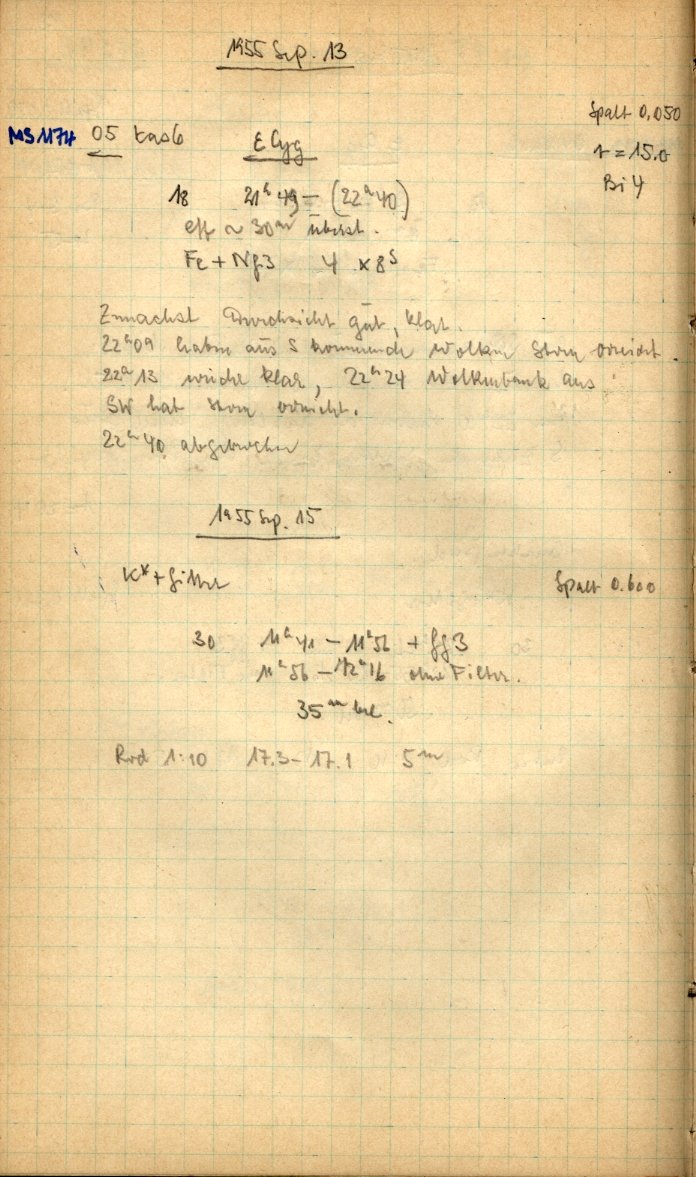 1955 Sep. 13
Spalt 0,050
MS1174 05 Kas6 ε Cyg
t = 15.0
Bi 4
18 21ʰ49 – (22ʰ40)
eff ~ 30ᵐ überst.
Fe + Ng3 4 × 8ˢ
Zunächst Durchsicht gut, klar.
22ʰ09 haben aus S kommende Wolken Stern erreicht.
22ʰ13 wieder klar, 22ʰ24 Wolkenbank aus
SW hat Stern erreicht.
22ʰ40 abgebrochen
1955 Sep. 15
K* + Gitter Spalt 0.600
30 11ʰ41 – 11ʰ56 + Gg3
11ʰ56 – 12ʰ16 ohne Filter.
35ᵐ bel.
Rod 1:10 17.3 – 17.1 5ᵐ